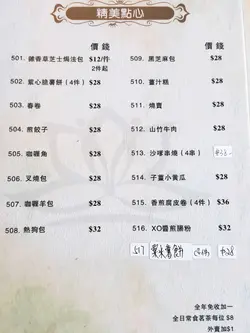 精美點心
價錢
501. 雜香草芝士焗法包 $12/件
2件起
502. 紫心脆薯餅 (4件) $28
503. 春卷 $28
504. 煎餃子 $28
505. 咖喱角 $28
506. 叉燒包 $28
507. 咖喱羊包 $28
508. 熱狗包 $32
價錢
509. 黑芝麻包 $28
510. 薑汁糕 $28
511. 燒賣 $28
512. 山竹牛肉 $28
513. 沙嗲串燒 (4串) $38
514. 子薑小黃瓜 $28
515. 香煎腐皮卷 (4件) $36
516. XO醬煎腸粉 $32
517 薯餅 $28
全年免收加一
全日常食茗茶每位 $8
外賣加$1